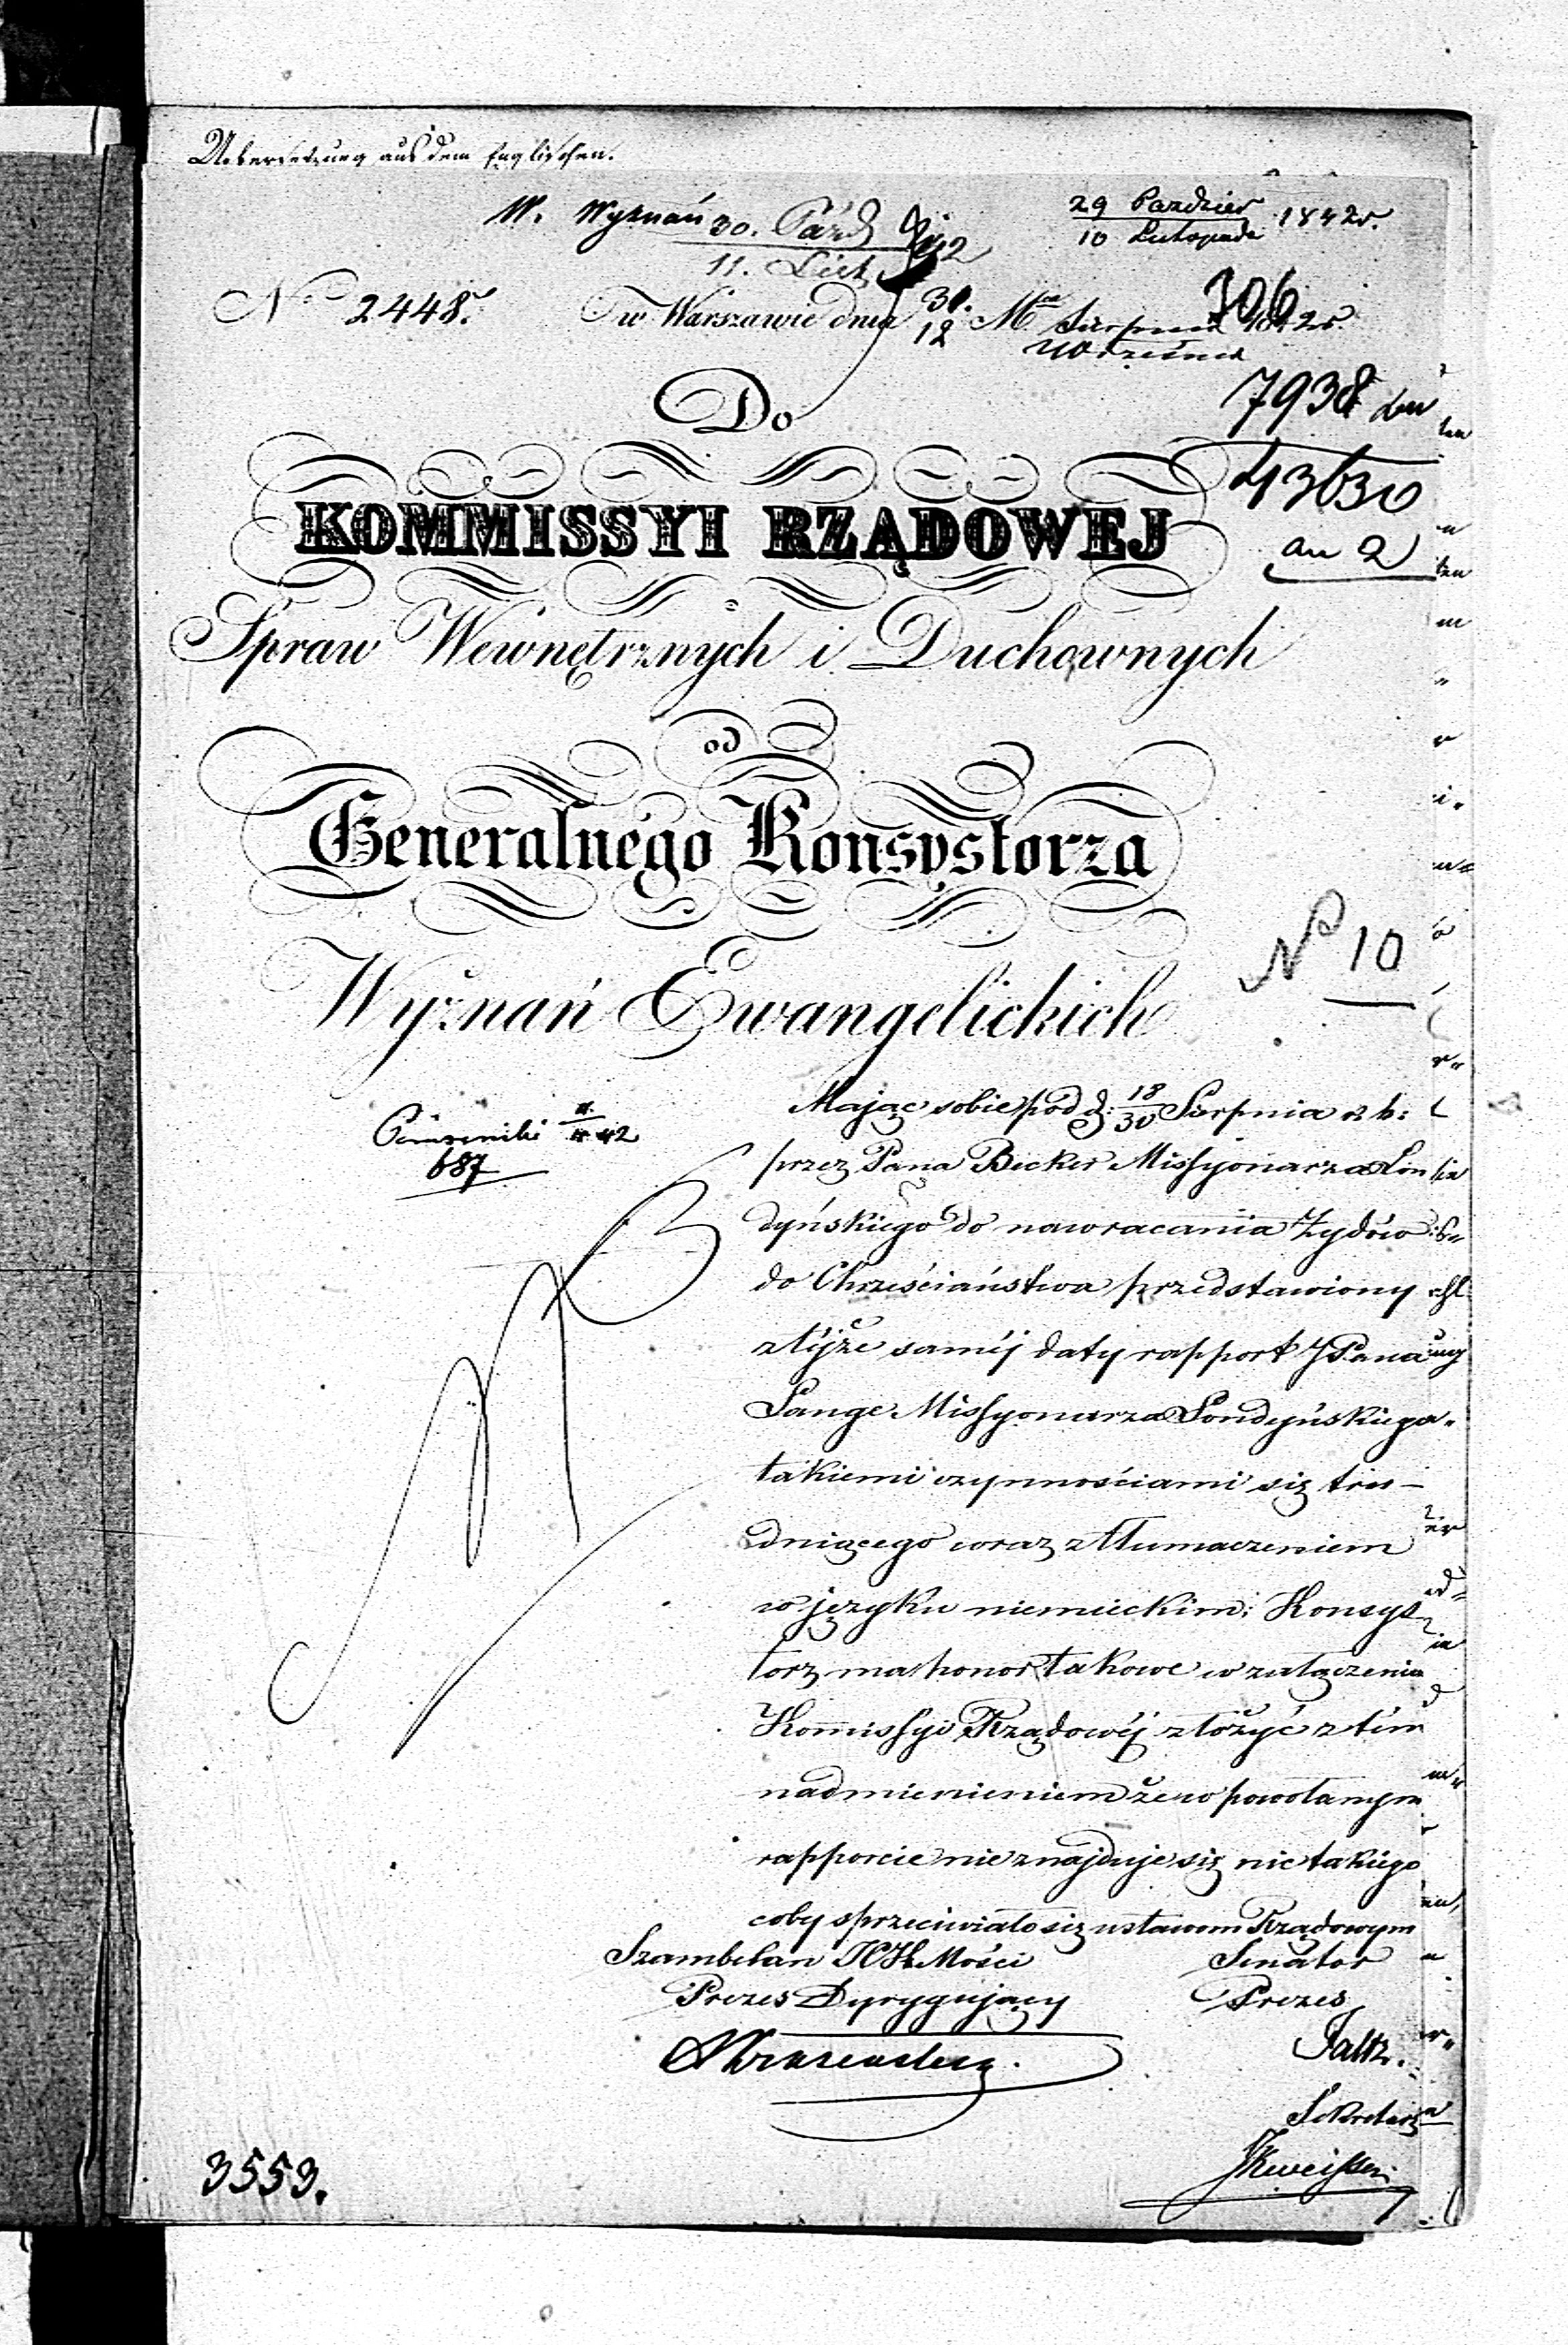 Uebersetzung aus dem Englischen.
W. Wyznań 30. Paźd
11. List 42
29 Paździer 1842r.
10 Listopada
No 2448.
w Warszawie dnia 31. Ma Sierpnia 1842r.
12 Września
306
7938
Do
13630
KOMMISSYI RZĄDOWEJ
an 2
Spraw Wewnętrznych i Duchownych
od
Generalnego Konsystorza
No 10
Wyznań Ewangelickich
687
Mając sobie pod d. 18/30 Sierpnia r b:
przez Pana Becker Missyonarza Lon
dyńskiego do nawracania Żydów
do Chrześciaństwa przedstawiony
z téjże saméj daty rapport JPana
Lange Missyonarza Londyńskiego
takiemi czynnościami się tru-
dniącego wraz z tłumaczeniem
w języku niemieckim; Konsys
torz ma honor takowe w załączeniu
Kommissyi Rządowéj złożyć z tém
nadmienieniem że w powołanym
rapporcie nie znajduje się nic takiego
coby sprzeciwiało się ustawom Rządowym
Szambelan JKMości
Senator
Prezes Dyrygujący
Prezes
Sekretarz
3553.